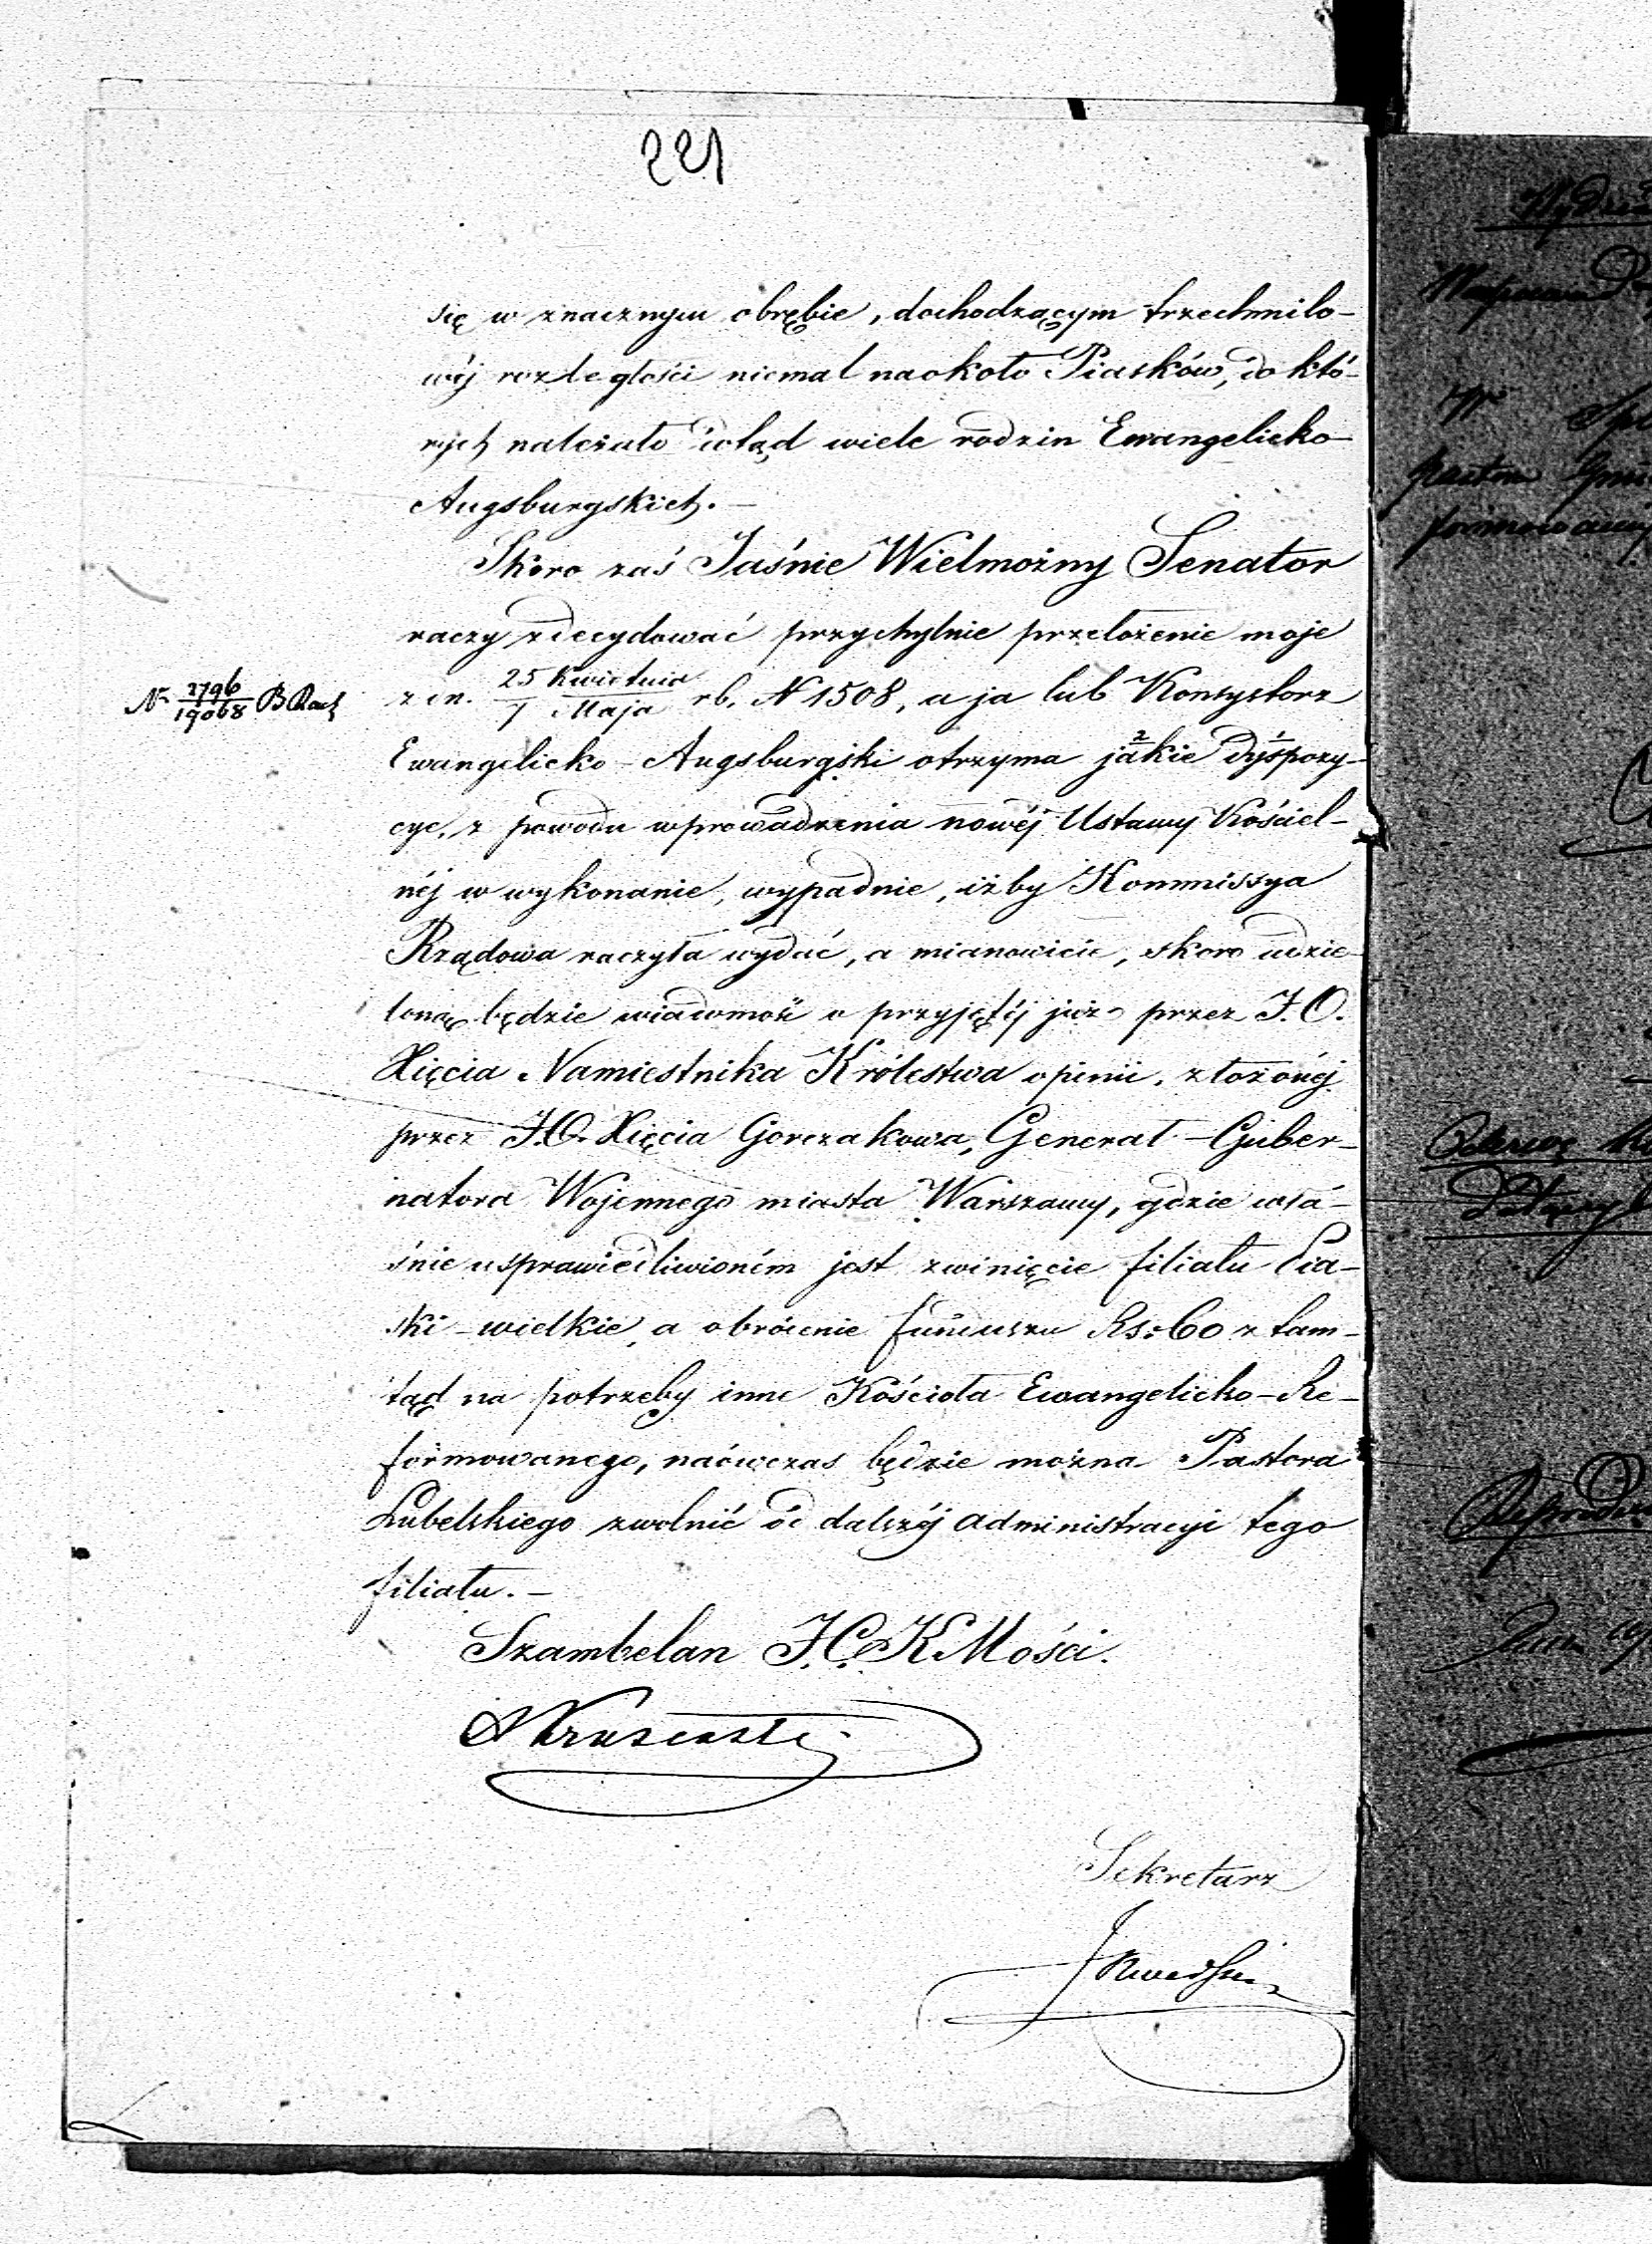 221
się w znacznym obrębie, dochodzącym trzechmilo-
wéj rozległości niemal naokoło Piasków, do któ-
rych należało wład wiele rodzin Ewangelicko-
Augsburgskich. -
Skoro zaś Jaśnie Wielmożny Senator
raczy zdecydować przychylnie przełożenie moje
N 2796/19068 B
z dn. 25 Kwietnia / 7 Maja rb. N 1508, a ja lub Konsystorz
Ewangelicko-Augsburgski otrzyma jakie dyspozy-
cye, z powodu wprowadzenia nowéj Ustawy Kościel-
néj w wykonanie, wypadnie, iżby Kommissya
Rządowa raczyła wydać, a mianowicie, skoro udzie-
loną będzie wiadomość o przyjętéj już przez J.O.
Xięcia Namiestnika Królestwa opinii, złożonéj
przez J.O. Xięcia Gorczakowa, Generał-Guber-
natora Wojennego miasta Warszawy, gdzie wła-
śnie usprawiedliwioném jest zwinięcie filiału Pia-
ski-wielkie, a obrócenie funduszu Rs: 60 z tam-
tąd na potrzeby inne Kościoła Ewangelicko-Re-
formowanego, naówczas będzie można Pastora
Lubelskiego zwolnić od dalszéj administracyi tego
filiału. -
Szambelan J.C.K Mości.
Sekretarz